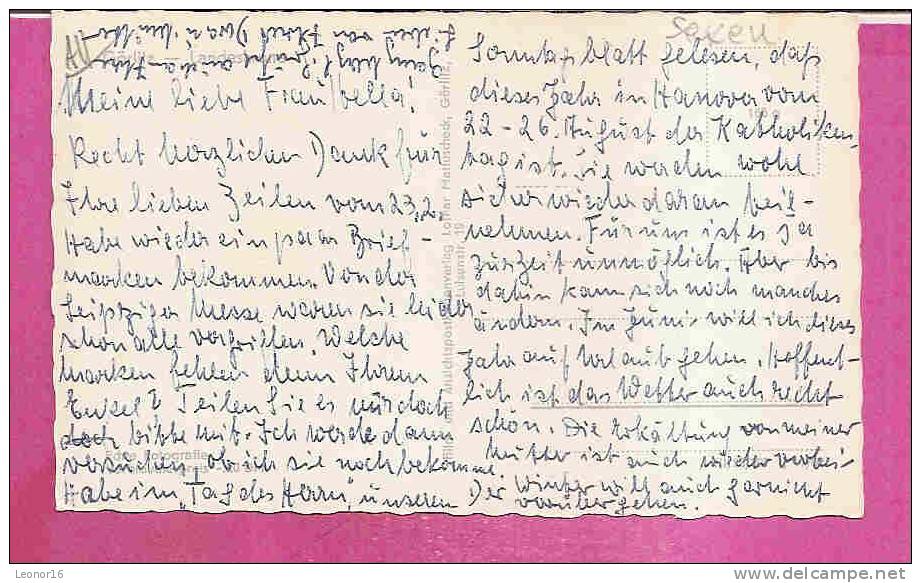 Meine liebe Frau Bella!
Recht herzlichen Dank für
Ihre lieben Zeilen vom 23.2.
Habe wieder ein paar Brief-
marken bekommen. Von der
Leipziger Messe waren sie leider
schon alle vergriffen. Welche
Marken fehlen denn Ihrem
Enkel? Teilen Sie es mir doch
doch bitte mit. Ich werde dann
versuchen, ob ich sie noch bekomme.
Habe im "Tag des Herrn", unserem
Sonntagsblatt gelesen, daß
dieses Jahr in Hanover vom
22-26. August der Katholiken-
tag ist. Sie werden wohl
sicher wieder daran teil-
nehmen. Für uns ist es ja
zurzeit unmöglich. Aber bis
dahin kann sich noch manches
ändern. Im Juni will ich dieses
Jahr auf Urlaub gehen. Hoffent-
lich ist das Wetter auch recht
schön. Die Erkältung von meiner
Mutter ist auch wieder vorbei.
Der Winter will auch garnicht
vorübergehen.
Ganz herzl. Grüße auch an Ihre
Lieben von Ihrer
Echte Fotografie
Lothar Mattuscheck, Görlitz,
Luisenstr. 19
Leonor16
www.delcampe.net